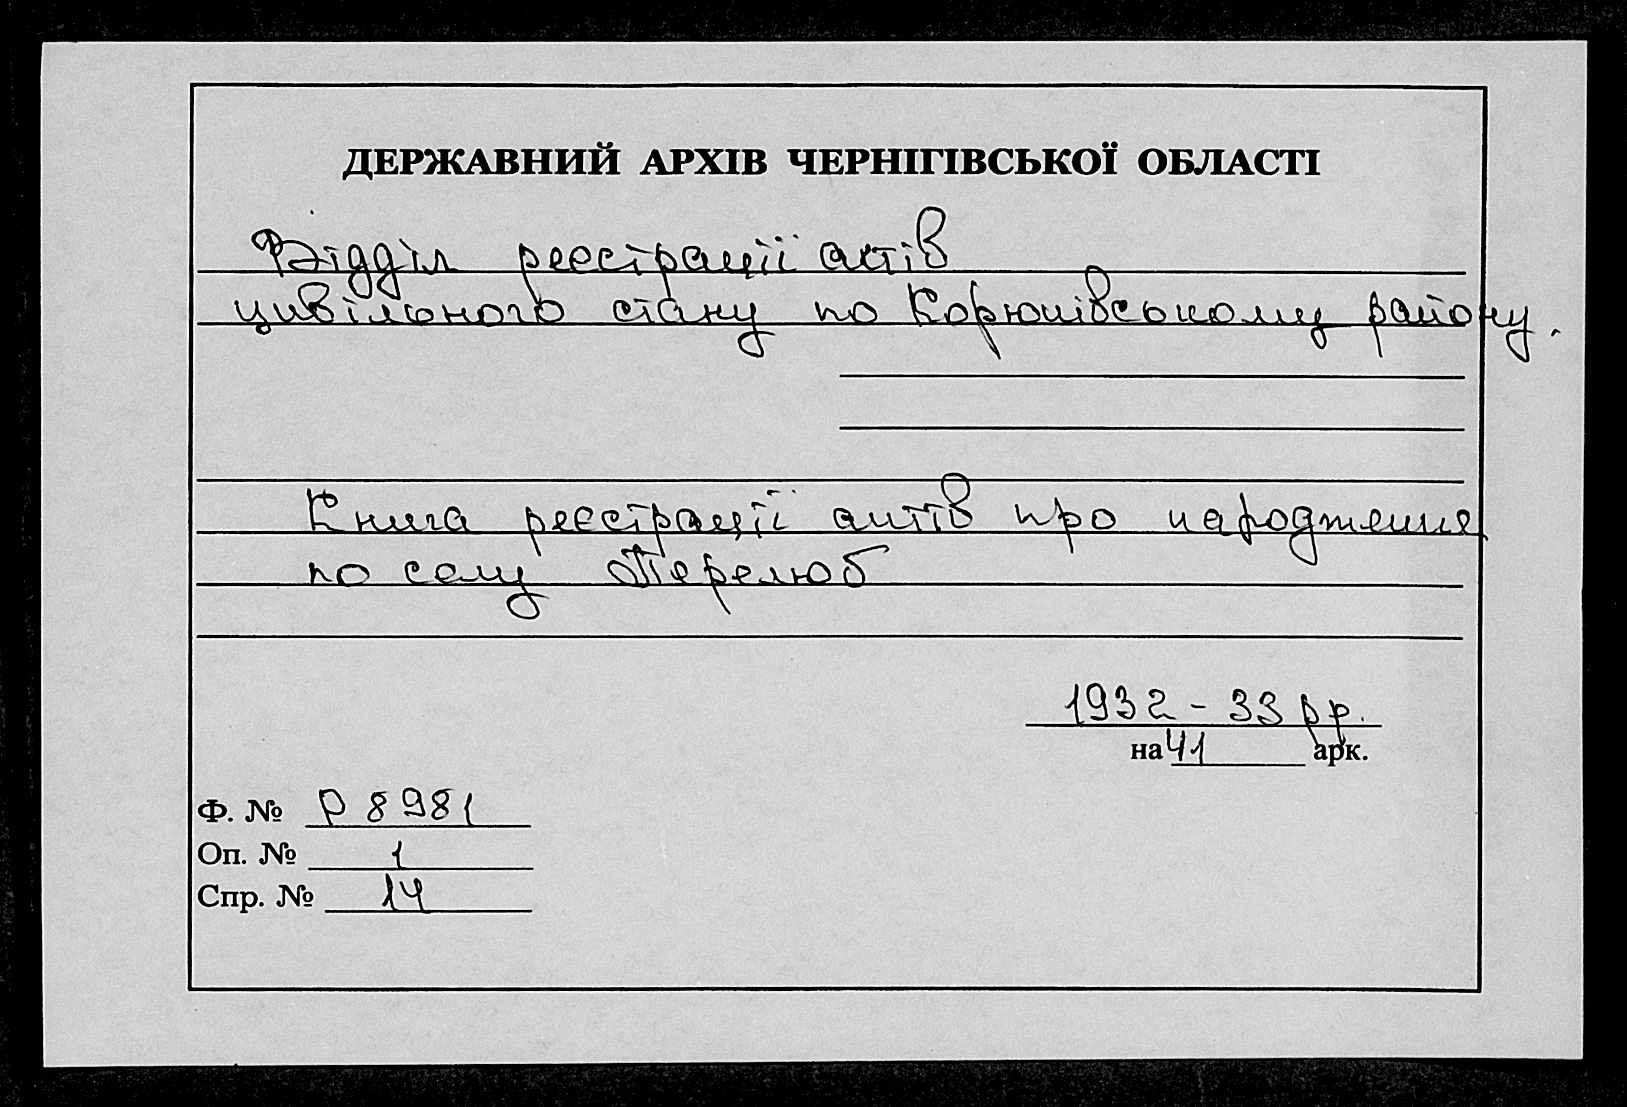 ДЕРЖАВНИЙ АРХІВ ЧЕРНІГІВСЬКОЇ ОБЛАСТІ
Відділ реєстрації актів
цивільного стану по Корюківському району.
Книга реєстрації актів про народження
по селу Перелюб
1932 - 33 рр.
на 41 арк.
Ф. № Р 8981
Оп. № 1
Спр. № 14